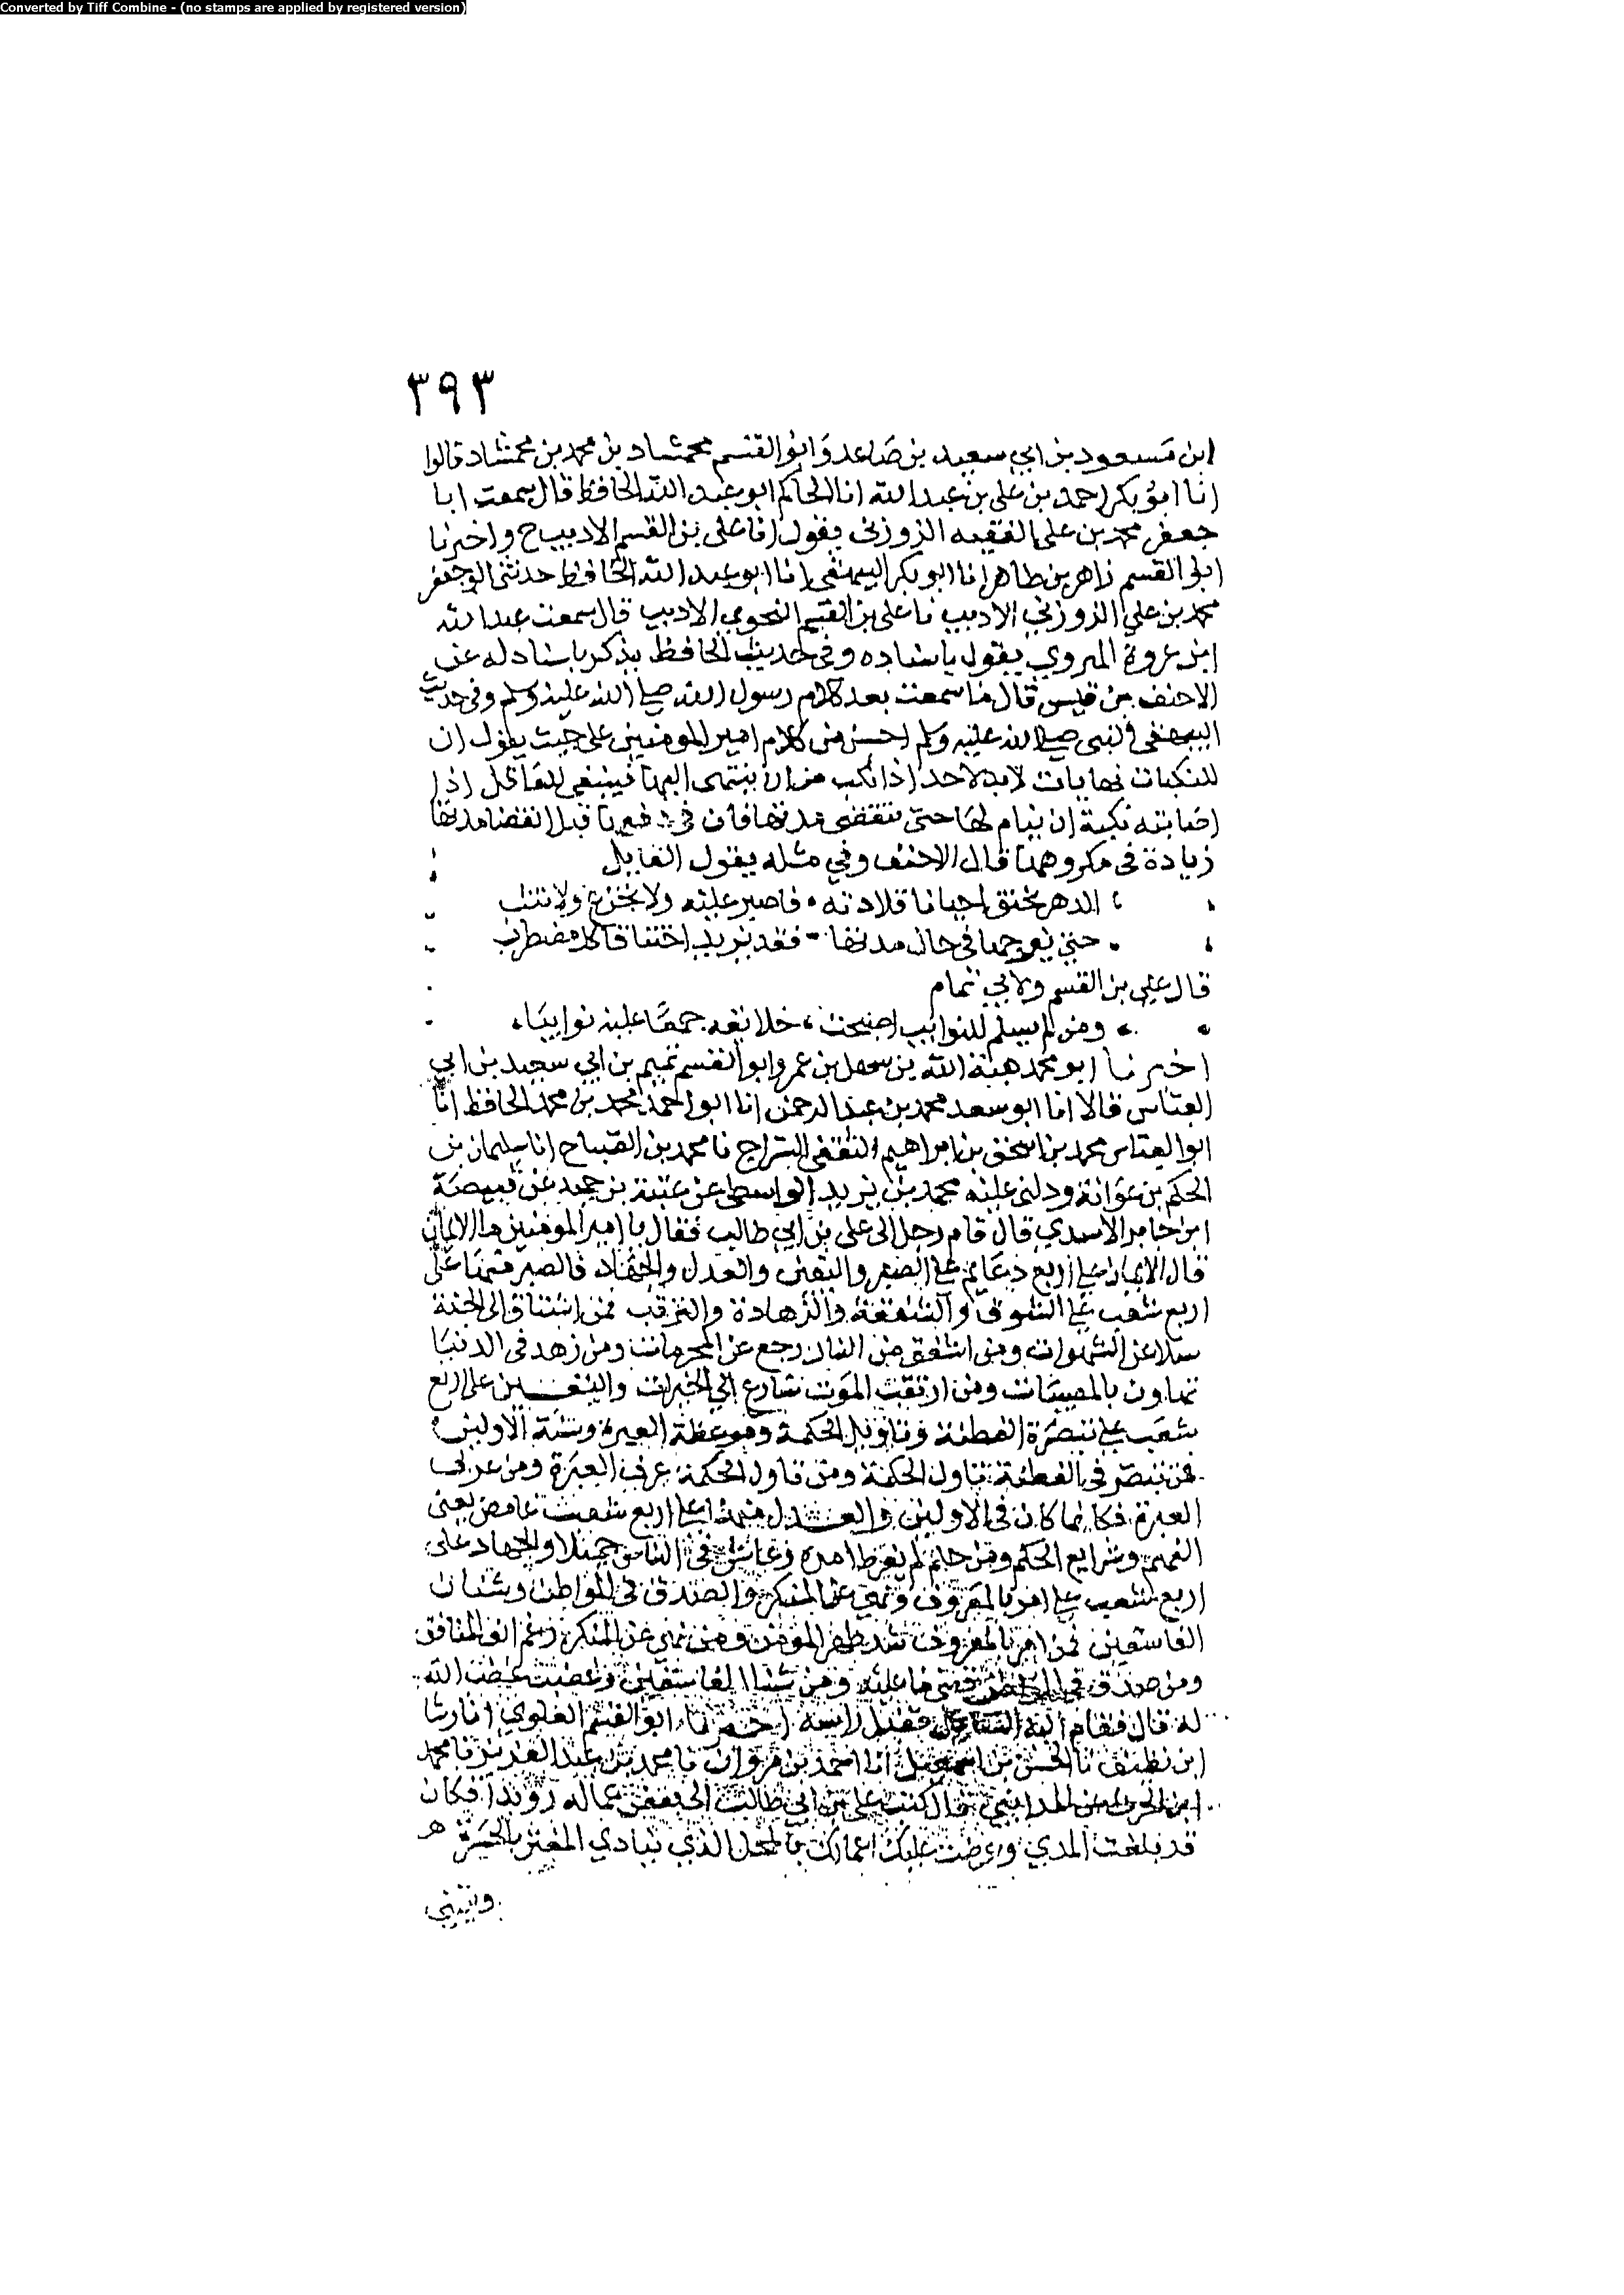 Converted by Tiff Combine - (no stamps are applied by registered version)
٣٩٣
ابن مسعود بن ابي سعيد بن صاعد وابو القسم محمشاد بن محمد بن محمشاد قالوا
انا ابو بكر احمد بن علي بن عبد الله انا الحاكم ابو عبد الله الحافظ قال سمعت ابا
جعفر محمد بن علي الفقيه الزوزني يقول انا علي بن القسم الاديب ح واخبرنا
ابو القسم زاهر بن طاهر انا ابو بكر البيهقي انا ابو عبد الله الحافظ حدثني ابو جعفر
محمد بن علي الزوزني الاديب نا علي بن القسم النحوي الاديب قال سمعت عبد الله
ابن عروة الهروي يقول باسناده وفي حديث الحافظ يذكر باسناد له عن
الاحنف بن قيس قال ما سمعت بعد كلام رسول الله صلى الله عليه وسلم وفي حديث
البيهقي النبي صلى الله عليه وسلم احسن من كلام امير المومنين علي حيث يقول ان
للنكبات نهايات لا بد لاحد اذا نكب من ان ينتهى اليها فينبغي للعاقل اذا
اصابته نكبة ان ينام لها حتى تنقضي مدتها فان في دفعها قبل انقضا مدتها
زيادة في مكروهها قال الاحنف وفي مثله يقول القايل
الدهر يخنق احيانا قلادته فاصبر عليه ولا تجزع ولا تثب
حتى يفرجها في حال مدتها فقد يزيد اختناقا كل مضطرب
قال علي بن القسم ولابي تمام
ومن لم يسلم للنوايب اصبحت خلائقه جمعا عليه نوايبا
اخبرنا ابو محمد هبة الله بن سهل بن عمر وابو القسم تميم بن ابي سعيد بن ابي
العباس قالا انا ابو سعد محمد بن عبد الرحمن انا ابو احمد محمد بن محمد الحافظ انا
ابو العباس محمد بن اسحق بن ابراهيم الثقفي السراج نا محمد بن الصباح انا سليمان بن
الحكم بن عوانة ودلني عليه محمد بن يزيد الواسطي عن عتبة بن حميد عن قبيصة
ابن جابر الاسدي قال قام رجل الى علي بن ابي طالب فقال يا امير المومنين ما الايمان
قال الايمان على اربع دعايم على الصبر واليقين والعدل والجهاد فالصبر منها على
اربع شعب على الشوق والشفقة والزهادة والترقب فمن اشتاق الى الجنة
سلا عن الشهوات ومن اشفق من النار رجع عن المحرمات ومن زهد في الدنيا
تهاون بالمصيبات ومن ارتقب الموت سارع الى الخيرات واليقين على اربع
شعب على تبصرة الفطنة وتاويل الحكمة وموعظة العبرة وسنة الاولين
فمن تبصر في الفطنة تاول الحكمة ومن تاول الحكمة عرف العبرة ومن عرف
العبرة فكانما كان في الاولين والعدل منها على اربع شعب غامض يعني
الفهم وشرايع الحكم ومن حلم لم يفرط امره وعاش في الناس جميلا والجهاد على
اربع شعب على امر بالمعروف ونهي عن المنكر والصدق في المواطن وشنان
الفاسقين فمن امر بالمعروف شد ظهر المومن ومن نهى عن المنكر رغم انف المنافق
ومن صدق في المواطن قضى ما عليه ومن شنا الفاسقين وغضب غضب الله
له قال فقام اليه السائل فقبل راسه اخبرنا ابو القسم العلوي انا رشا
ابن نظيف نا الحسن بن اسمعيل انا احمد بن مروان نا محمد بن عبد العزيز نا محمد
ابن الحرث عن المدايني قال كتب علي بن ابي طالب الى بعض عماله رويدا فكان
قد بلغت المدي وعرضت عليك اعمالك بالمحل الذي ينادي المغتر بالحسرة
ويتمنى